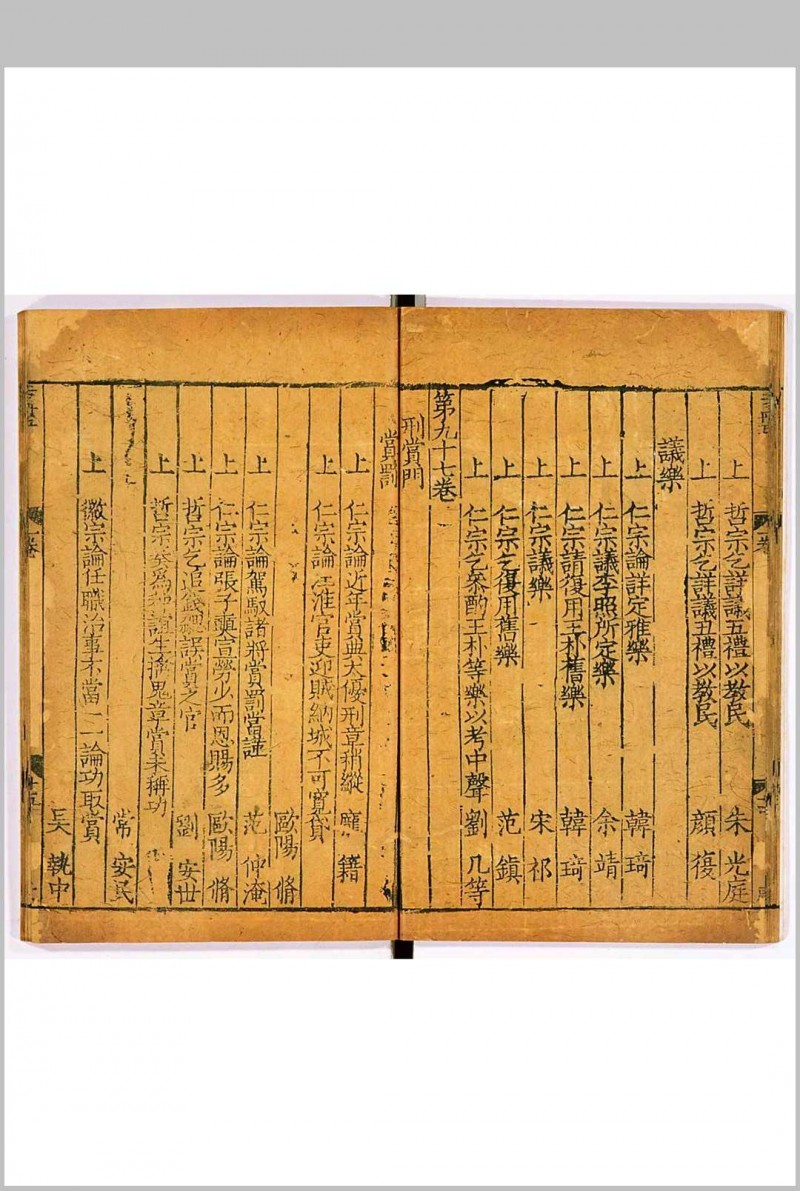 上 哲宗乞詳議五禮以教民 朱光庭
上 哲宗乞詳議五禮以教民 顔復
議樂
上 仁宗論詳定雅樂 韓琦
上 仁宗議李照所定樂 余靖
上 仁宗請復用王朴舊樂 韓琦
上 仁宗議樂 宋祁
上 仁宗乞復用舊樂 范鎮
上 仁宗乞叅酌王朴等樂以考中聲 劉几等
第九十七卷
刑賞門
賞罰
上 仁宗論近年賞典太優刑章稍縱 龐籍
上 仁宗論江淮官吏迎賊納城不可寬貸
歐陽脩
上 仁宗論駕馭諸將賞罰當謹 范仲淹
上 仁宗論張子奭宣勞少而恩賜多 歐陽脩
上 哲宗乞追誤賞之官 劉安世
哲宗 誼生擒鬼章賞未稱功
常安民
上 徽宗論任職治事不當一一論功取賞
吳執中